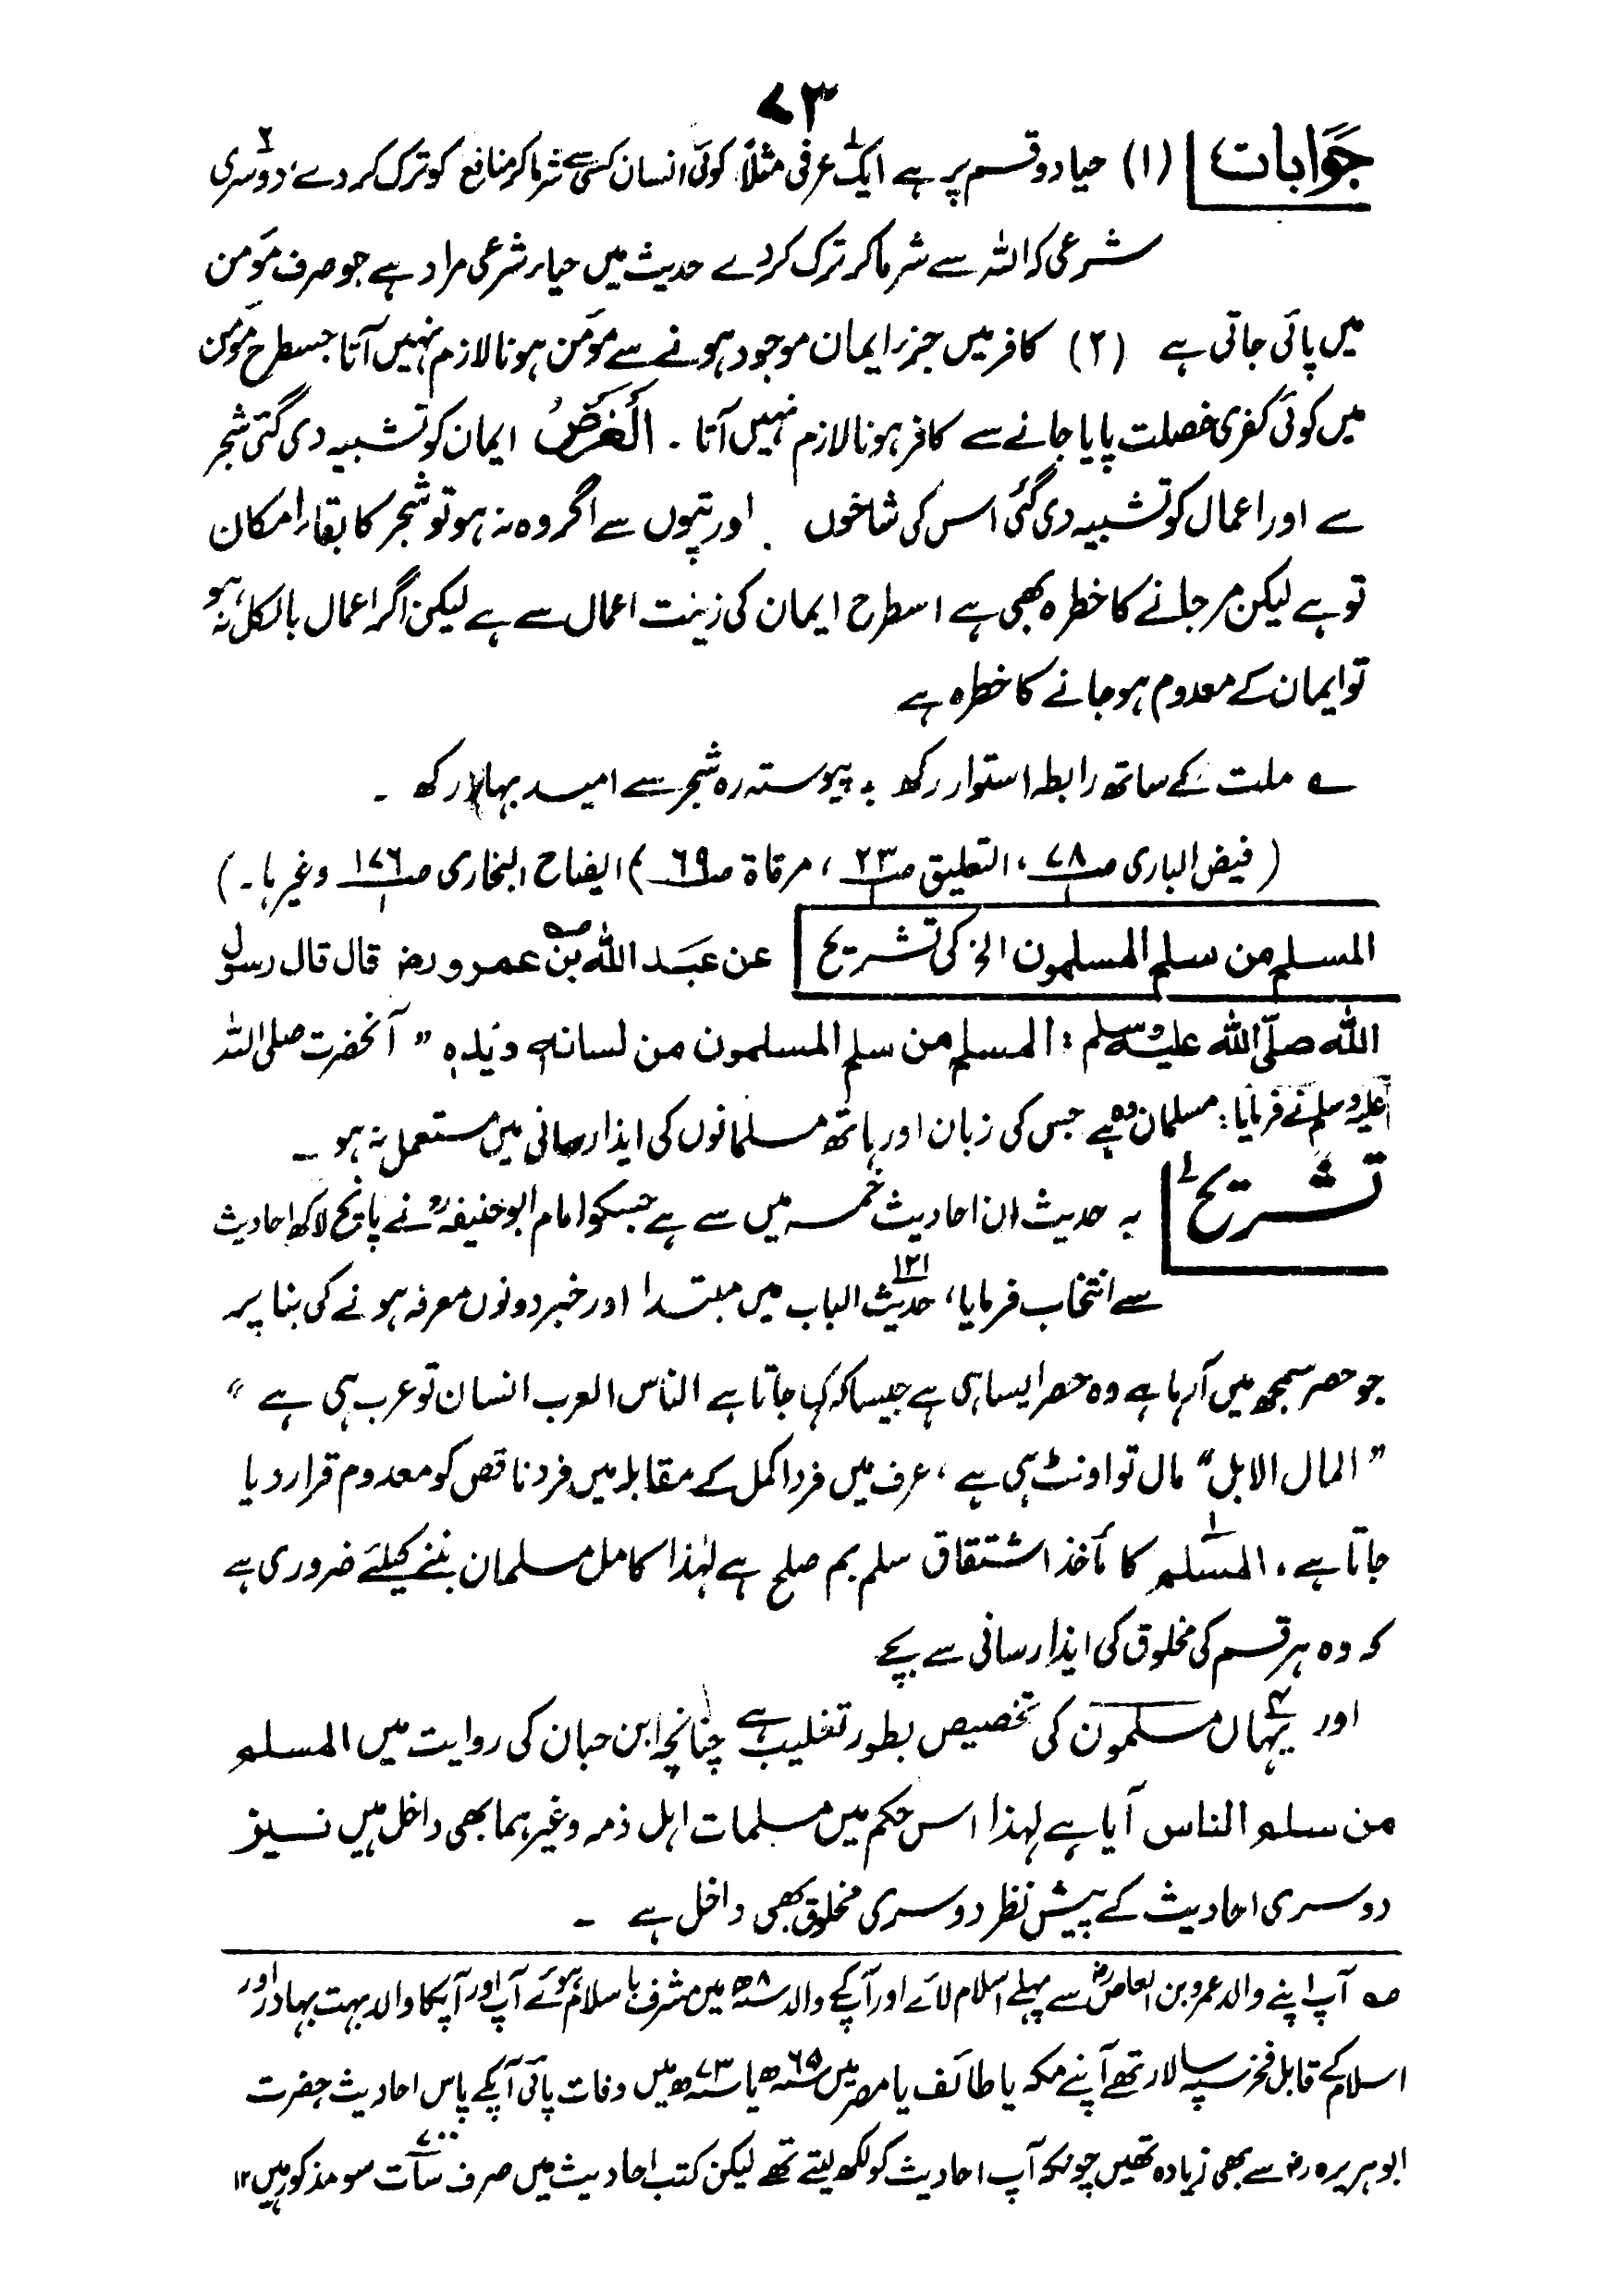 ۷۳
جوابات (۱) حیا دو قسم پر ہے ایک عرفی مثلاً کوئی انسان کسی سے شرما کر منافع کو ترک کر دے، دوسری
شرعی کہ اللہ سے شرما کر ترک کر دے حدیث میں حیاء شرعی مراد ہے جو صرف مؤمن
میں پائی جاتی ہے (۲) کافر میں جزء ایمان موجود ہونے سے مؤمن ہونا لازم نہیں آتا جسطرح مؤمن
میں کوئی کفری خصلت پایا جانے سے کافر ہونا لازم نہیں آتا ۔ الغرضُ ایمان کو تشبیہ دی گئی شجر
سے اور اعمال کو تشبیہ دی گئی اس کی شاخوں اور پتوں سے اگر وہ نہ ہو تو شجر کا بقاء امکان
تو ہے لیکن مر جانے کا خطرہ بھی ہے اسطرح ایمان کی زینت اعمال سے ہے لیکن اگر اعمال بالکل نہ ہو
تو ایمان کے معدوم ہو جانے کا خطرہ ہے
؎ ملت کے ساتھ رابطہ استوار رکھ ؛ پیوستہ رہ شجر سے امید بہار رکھ ۔
(فیض الباری صـ۷۸/۱، التعلیق صـ۲۳/۱، مرقاۃ صـ۶۹، ایضاح البخاری صـ۱۷۶/۱ وغیرہا ۔)
المسلم من سلم المسلمون الخ کی تشریح عن عبد الله بنؔ عمرو رضـ قال قال رسول
الله صلّی الله علیہ وسلم : المسلم من سلم المسلمون من لسانہ ویدہ " آنحضرت صلی اللہ
علیہ وسلم نے فرمایا : مسلمان وہ ہے جس کی زبان اور ہاتھ مسلمانوں کی ایذا رسانی میں مستعمل نہ ہو ۔
تشریح ۱ یہ حدیث ان احادیث خمسہ میں سے ہے جسکو امام ابو حنیفہؒ نے پانچ لاکھ احادیث
سے انتخاب فرمایا، (۲) حدیث الباب میں مبتدا اور خبر دونوں معرفہ ہونے کی بنا پر
جو حصر سمجھ میں آرہا ہے وہ حصر ایسا ہی ہے جیسا کہ کہا جاتا ہے الناس العرب انسان تو عرب ہی ہے "
" المال الابل " مال تو اونٹ ہی ہے ، عرف میں فرد اکمل کے مقابلہ میں فرد ناقص کو معدوم قرار دیا
جاتا ہے ، المسلم کا مأخذ اشتقاق سلم بم صلح ہے لہٰذا کامل مسلمان بننے کیلئے ضروری ہے
کہ وہ ہر قسم کی مخلوق کی ایذا رسانی سے بچے
اور یہاں مسلمون کی تخصیص بطور تغلیب ہے چنانچہ ابن حبان کی روایت میں المسلم
من سلم الناس آیا ہے لہذا اس حکم میں مسلمات اہل ذمہ وغیرہما بھی داخل ہیں نیز
دوسری احادیث کے پیش نظر دوسری مخلوق بھی داخل ہے ۔
صہ آپ اپنے والد عمرو بن العاصؓ سے پہلے اسلام لائے اور آپکے والد سنہ ۸ھ میں مشرف باسلام ہوئے آپ اور آپکا والد بہت بہادر اور
اسلام کے قابل فخر سپہ سالار تھے آپنے مکہ یا طائف یا مصر میں سنہ ۶۵ھ یا سنہ ۷۳ھ میں وفات پائی آپکے پاس احادیث حضرت
ابو ہریرہ رضـ سے بھی زیادہ تھیں چونکہ آپ احادیث کو لکھ لیتے تھے لیکن کتب احادیث میں صرف سات سو ۷۰۰ مذکور ہیں ۱۲